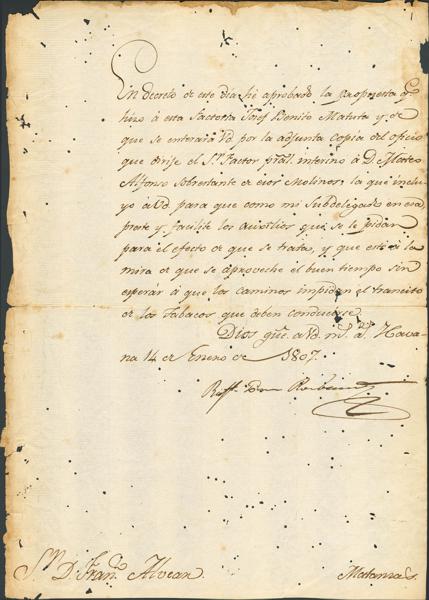 En decreto de este dia he aprobado la propuesta q.e
hizo á esta Factoria Josef Benito Matuta y de
que se enterará Vd por la adjunta copia del oficio
que dirije el S.or Factor pral. interino á D. Mateo
Alfonso sobrestante de esos Molinos, la que inclu
yo á Vd para que como mi Subdelegado en esa
parte y facilite los auxilios que se le pidan
para el efecto de que se trata, y que esté á la
mira de que se aproveche el buen tiempo sin
esperár á que los caminos impidan el transito
de los Tabacos que deben conducirse.
Dios gu.e a Vd m.s a.s Hava-
na 14 de Enero de 1807.
S.or D. Fran.co Alvear.
Matanzas.